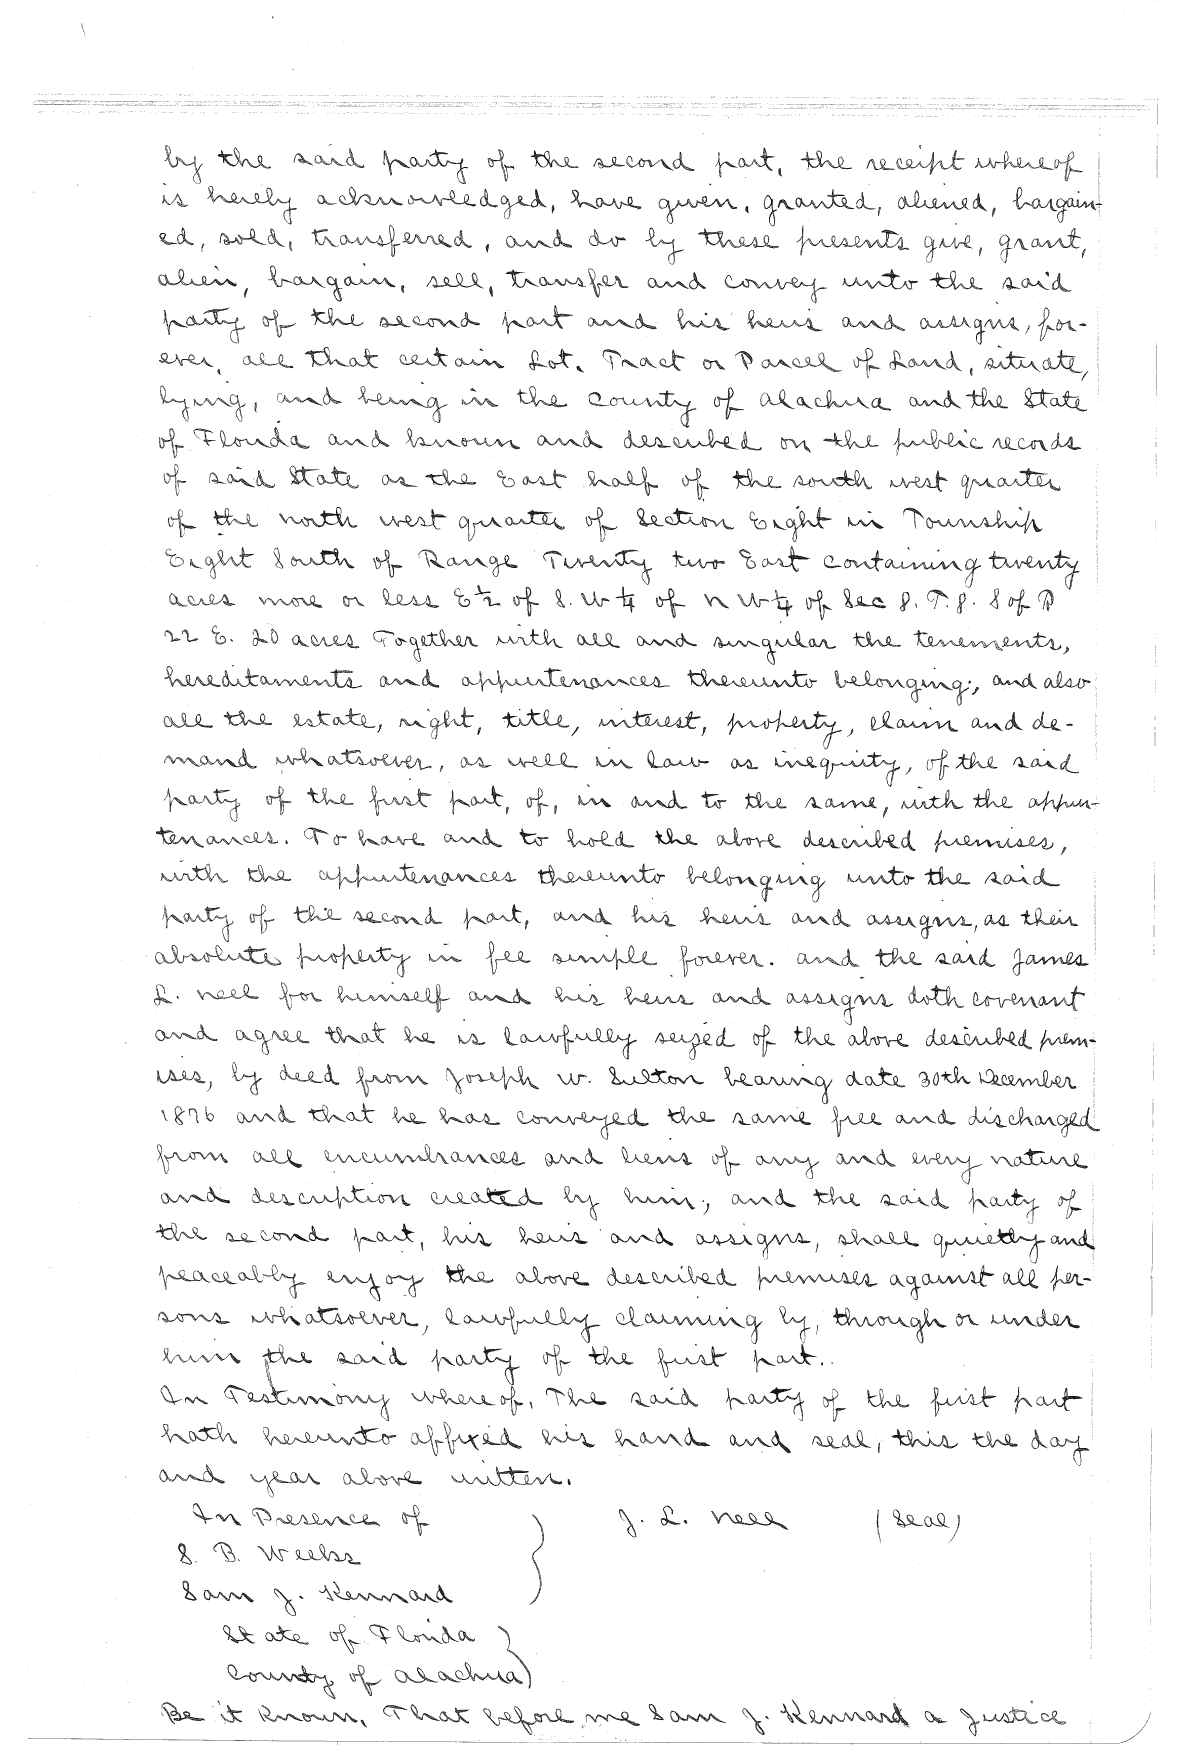 by the said party of the second part, the receipt whereof
is hereby acknowledged, have given, granted, aliened, bargain-
ed, sold, transferred, and do by these presents give, grant,
alien, bargain, sell, transfer and convey unto the said
party of the second part and his heirs and assigns, for-
ever, all that certain Lot, Tract or Parcel of Land, situate,
lying, and being in the county of Alachua and the State
of Florida and known and described on the public records
of said State as the East half of the south west quarter
of the north west quarter of Section Eight in Township
Eight South of Range Twenty two East containing twenty
acres more or less E½ of S. W¼ of N W¼ of Sec 8. T. 8. S of R
22 E. 20 acres Together with all and singular the tenements,
hereditaments and appurtenances thereunto belonging, and also
all the estate, right, title, interest, property, claim and de-
mand whatsoever, as well in law as inequity, of the said
party of the first part, of, in and to the same, with the appur-
tenances. To have and to hold the above described premises,
with the appurtenances thereunto belonging unto the said
party of the second part, and his heirs and assigns, as their
absolute property in fee simple forever. and the said James
L. Nell for himself and his heirs and assigns doth covenant
and agree that he is lawfully seized of the above described prem-
ises, by deed from Joseph W. Sulton bearing date 30th December
1876 and that he has conveyed the same free and discharged
from all encumbrances and liens of any and every nature
and description created by him; and the said party of
the second part, his heirs and assigns, shall quietly and
peaceably enjoy the above described premises against all per-
sons whatsoever, lawfully claiming by, through or under
him the said party of the first part.
In Testimony whereof, The said party of the first part
hath hereunto affixed his hand and seal, this the day
and year above written.
In Presence of } J. L. Nell (Seal)
S. B. Weeks
Sam J. Kennard
State of Florida )
County of Alachua )
Be it known, That before me Sam J. Kennard a Justice